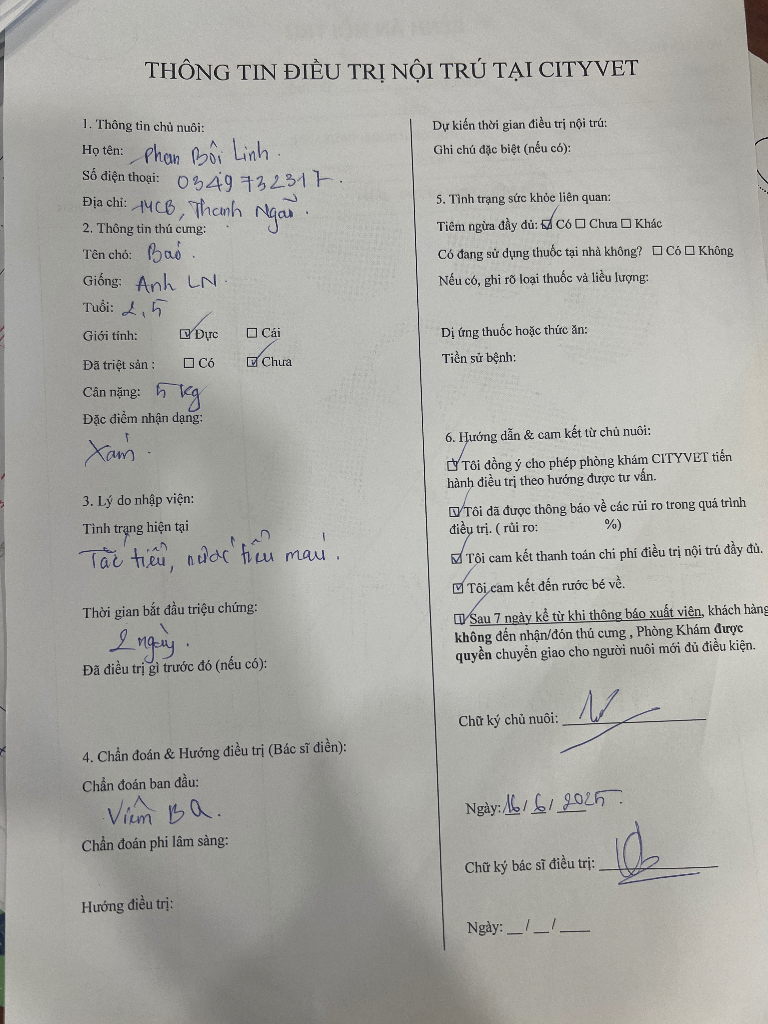 THÔNG TIN ĐIỀU TRỊ NỘI TRÚ TẠI CITYVET
1. Thông tin chủ nuôi:
Họ tên: Phan Bôi Linh.
Số điện thoại: 0349732317.
Địa chỉ: 14CB, Thanh
2. Thông tin thú cưng:
Tên chó: Baó.
Giống: Anh LN.
Tuổi: 2,5
Giới tính: ☑ Đực ☐ Cái
Đã triệt sản : ☐ Có ☑ Chưa
Cân nặng: 5 kg
Đặc điểm nhận dạng:
Xám.
3. Lý do nhập viện:
Tình trạng hiện tại
Tắc tiểu, nước tiểu máu.
Thời gian bắt đầu triệu chứng:
2 ngày.
Đã điều trị gì trước đó (nếu có):
4. Chẩn đoán & Hướng điều trị (Bác sĩ điền):
Chẩn đoán ban đầu:
Viêm BQ.
Chẩn đoán phi lâm sàng:
Hướng điều trị:
Dự kiến thời gian điều trị nội trú:
Ghi chú đặc biệt (nếu có):
5. Tình trạng sức khỏe liên quan:
Tiêm ngừa đầy đủ: ☑ Có ☐ Chưa ☐ Khác
Có đang sử dụng thuốc tại nhà không? ☐ Có ☐ Không
Nếu có, ghi rõ loại thuốc và liều lượng:
Dị ứng thuốc hoặc thức ăn:
Tiền sử bệnh:
6. Hướng dẫn & cam kết từ chủ nuôi:
☑ Tôi đồng ý cho phép phòng khám CITYVET tiến
hành điều trị theo hướng được tư vấn.
☑ Tôi đã được thông báo về các rủi ro trong quá trình
điều trị. ( rủi ro: %)
☑ Tôi cam kết thanh toán chi phí điều trị nội trú đầy đủ.
☑ Tôi cam kết đến rước bé về.
☑ Sau 7 ngày kể từ khi thông báo xuất viện, khách hàng
không đến nhận/đón thú cưng , Phòng Khám được
quyền chuyển giao cho người nuôi mới đủ điều kiện.
Chữ ký chủ nuôi:
Ngày: 16/ 6/ 2025.
Chữ ký bác sĩ điều trị:
Ngày: __/__/____